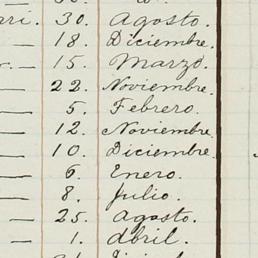 30. Agosto.
18. Diciembre.
15. Marzo.
22. Noviembre.
5. Febrero.
12. Noviembre.
10. Diciembre.
6. Enero.
8. Julio.
25. Agosto.
1. Abril.